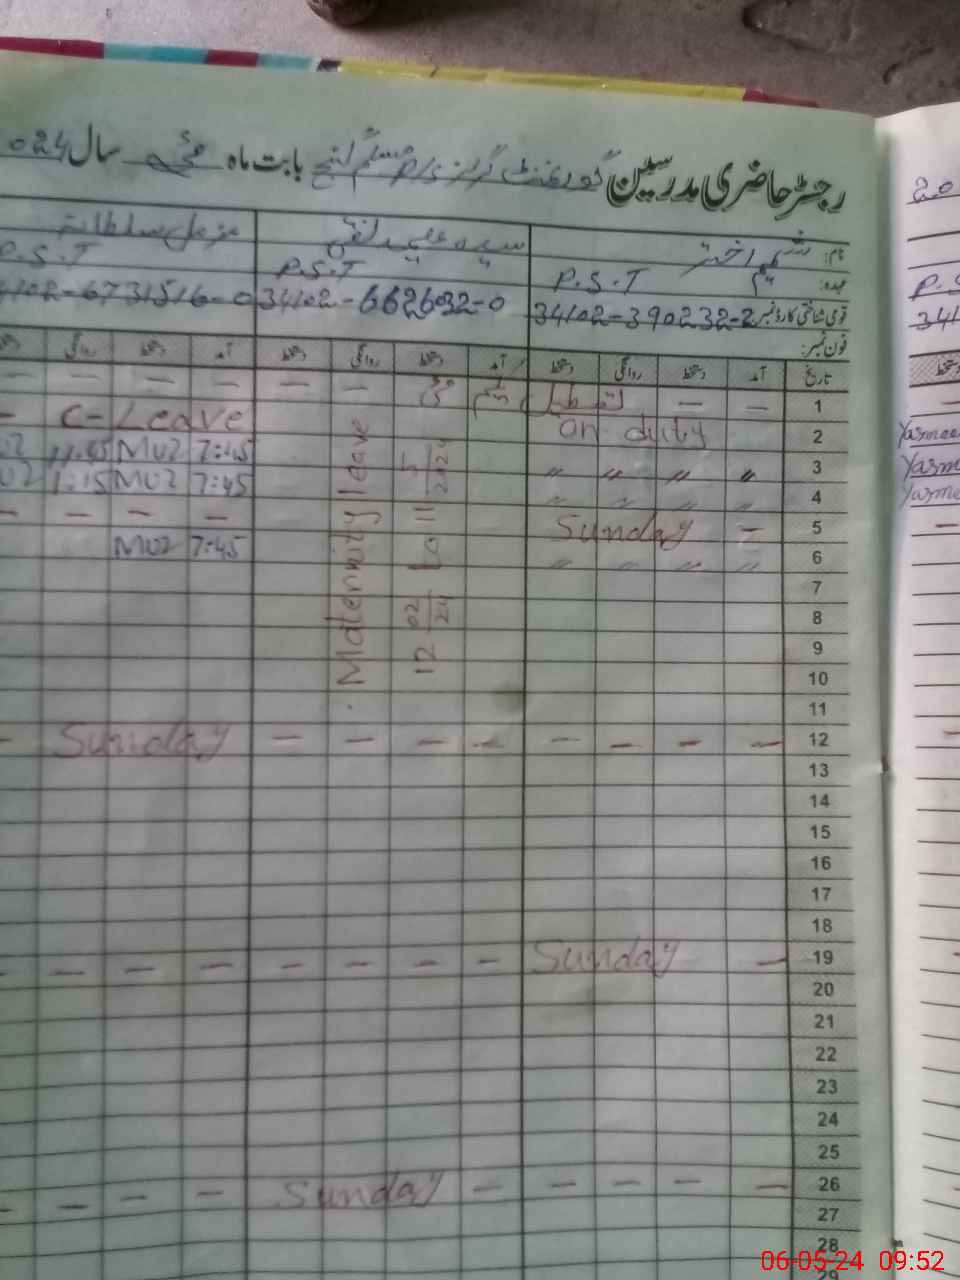 رجسٹر حاضری مدرسین گورنمنٹ گرلز P/S مسلم گنج بابت ماہ مئی سال 024
نام: شمیم اختر سیدہ
عہدہ: P.S.T P.S.T P.S.T
قومی شناختی کارڈ نمبر 34102-390232-2 34102-662602-0 34102-6731516-0
فون نمبر:
تاریخ آمد دستخط روانگی دستخط آمد دستخط روانگی دستخط آمد دستخط روانگی
1 — — تعطیل — — — — — —
2 on duty C-Leave
3 〃 〃 〃 〃 7:45 MUZ 11:45 UZ
4 〃 〃 〃 〃 7:45 MUZ 1:15 UZ
5 — Sunday — — — —
6 〃 〃 〃 〃 7:45 MUZ
Maternity leave
12 02/24 to 11 5/2024
7
8
9
10
11
12 — — — — — — — — Sunday —
13
14
15
16
17
18
19 — Sunday — — — — — — — —
20
21
22
23
24
25
26 — — — — — Sunday — — — —
27
28
29
20
P.S
341
دستخط
Yasmee
Yasm
Yasme
06-05-24 09:52